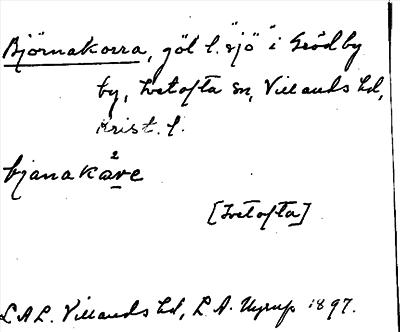 Björnakorra, göl l. "sjö" i Grödby
by, Ivetofta sn, Villands hd,
Krist. l.
bjanakåre
[Ivetofta]
LAL. Villands hd, L. A. Uyrup 1897.